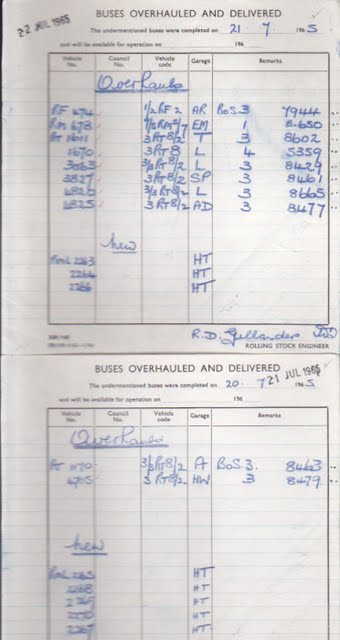 BUSES OVERHAULED AND DELIVERED
22 JUL 1965
The undermentioned buses were completed on 21 7 1965
and will be available for operation on 196
Vehicle No. Council No. Vehicle code Garage Remarks
Overhauls
RF 474 1/2RF2 AR BoS. 3 7944
RM 678 EM 1 8650
RT 1011 3RT8/2 T 3 8602
1670 3RT8 L 4 5359
3063 3/3RT8/2 L 3 8429
3827 3RT8/2 SP 3 8461
3/3RT8/2 L 3 8665
4825 3RT8/2 AD 3 8477
new
RML 2263 HT
2264 HT
2266 HT
ROLLING STOCK ENGINEER
BUSES OVERHAULED AND DELIVERED
21 JUL 1965
The undermentioned buses were completed on 20. 7 1965
and will be available for operation on 196
Vehicle No. Council No. Vehicle code Garage Remarks
Overhauls
RT 3/3RT8/2 A BoS. 3. 8463
3RT8/2 HW 3 8479
new
RML 2265 HT
2268 HT
HT
HT
HT